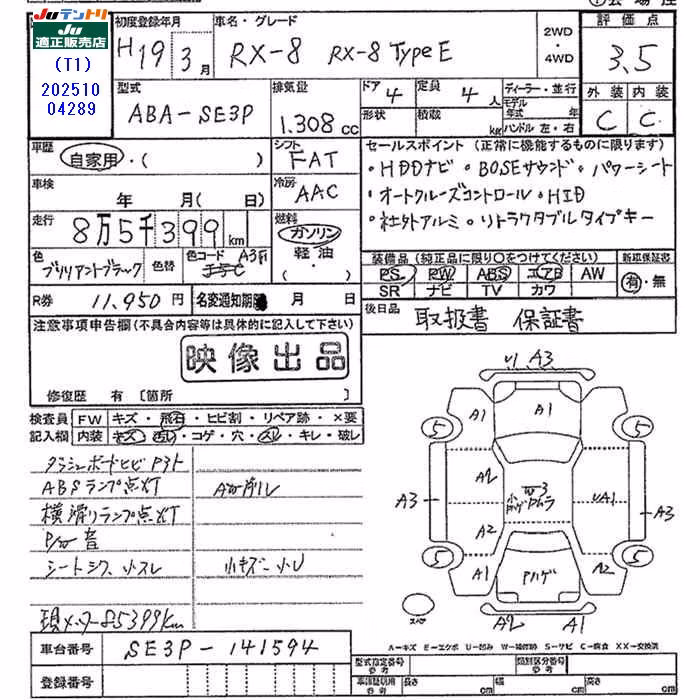 Juテントリ
Ju
適正販売店
(T1)
202510
04289
初度登録年月
H19年3月
車名・グレード
RX-8 RX-8 Type E
2WD
・
4WD
評価点
3.5
型式
ABA-SE3P
排気量
1.308cc
ドア 4
定員 4人
形状
積数 kg
ディーラー・並行
モデル年式 年
ハンドル 左・右
外装 内装
C C
車歴
自家用・( )
シフト
FAT
車検
年 月( 日)
冷房
AAC
走行
8万5千399km
燃料
ガソリン
軽油
( ・ )
色
ブリリアントブラック
色替
色コード A3F
R券 11,950円
名変通知期限 月 日
セールスポイント(正常に機能するものに限ります)
・HDDナビ ・BOSEサウンド ・パワーシート
・オートクルーズコントロール ・HID
・社外アルミ ・リトラクタブルタイプキー
装備品(純正品に限り○をつけてください)
PS PW ABS エアB AW
SR ナビ TV カワ
新車保証書
有・無
後日品
取扱書 保証書
注意事項申告欄(不具合内容等は具体的に記入して下さい)
映像出品
修復歴 有 〔箇所 〕
検査員記入欄
FW キズ・飛石・ヒビ割・リペア跡・×要
内装 キズ・汚レ・コゲ・穴・スレ・キレ・破レ
ダッシュボードヒビ
ABSランプ点灯
横滑りランプ点灯
音
シートシワ、小スレ
小キズ・小U
現メーター85399km
車台番号 SE3P-141594
登録番号
A3
A1
A1
5
5
A2
A3
UA1
A3
A2
5
5
A1
A2
Pハゲ
スペア
A2
A1
A-キズ E-エクボ U-凹み W-補修跡 S-サビ C-腐食 XX-交換済
型式指定番号 参考
類別区分番号 参考
車検証記載用 参考
長さ cm
幅 cm
高さ cm